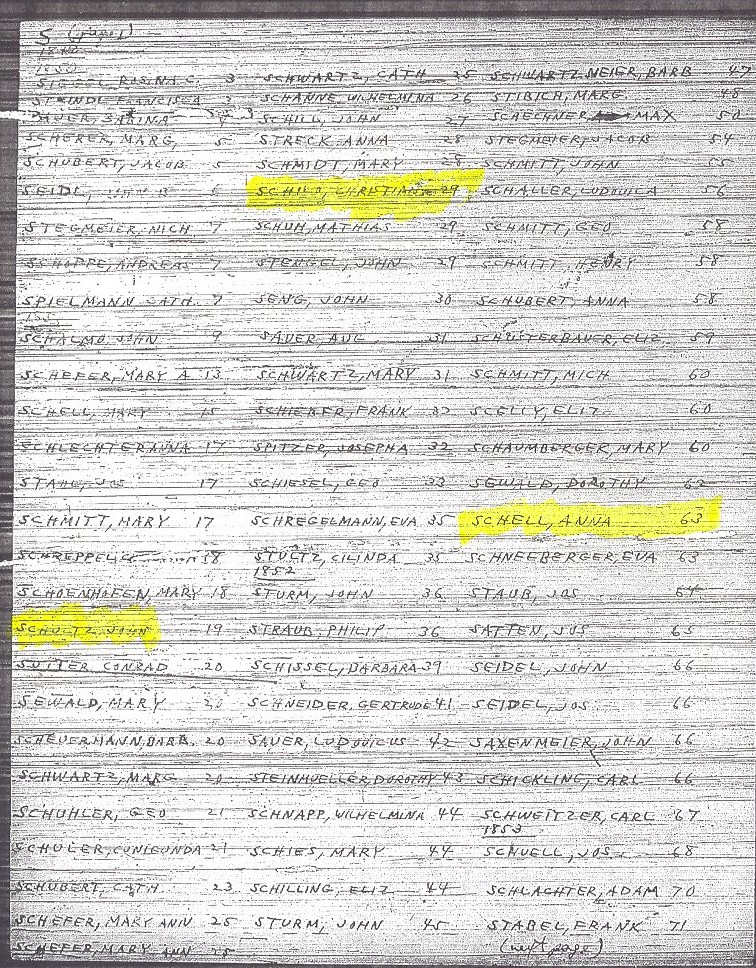 S (page 1)
1850
SIEGEL, ROSINA C. 3
STEINDL FRANCISCA 3
BAUER, SABINA
SCHERER, MARG, 5
SCHUBERT, JACOB 5
SEIDL, 6
STEGMEIER, NICH 7
SCHOPPE, ANDREAS 7
SPIELMANN CATH. 7
SCHALMO JOHN 9
SCHEFER, MARY A 13
SCHELL, MARY 15
SCHLECHTER ANNA 17
STAHL, JOS 17
SCHMITT, MARY 17
SCHREPPEL 18
SCHOENHOFEN, MARY 18
SCHULTZ JOHN 19
SUITER CONRAD 20
SEWALD, MARY 20
SCHEUERMANN, BARB. 20
SCHWARTZ, MARG 20
SCHUHLER, GEO 21
SCHULER, CUNIGUNDA 21
SCHUBERT, CATH. 23
SCHEFER, MARY ANN 25
SCHEFER, MARY ANN 25
SCHWARTZ, CATH 25
SCHANNE, WILHELMINA 26
SCHILD, JOHN 27
STRECK, ANNA 28
SCHMIDT, MARY 28
SCHILD, CHRISTIANA 29
SCHUH, MATHIAS 29
STENGEL, JOHN 29
SENG, JOHN 30
SAUER, AUG 31
SCHWARTZ, MARY 31
SCHIEBER, FRANK 32
SPITZER, JOSEPHA 32
SCHIESEL, GEO 33
SCHREGELMANN, EVA 35
STULTZ, CILINDA 35
1852
STURM, JOHN 36
STRAUB, PHILIP 36
SCHISSEL, BARBARA 39
SCHNEIDER, GERTRUDE 41
SAUER, LUDOVICUS 42
STEINMUELLER, DOROTHY 43
SCHNAPP, WILHELMINA 44
SCHIES, MARY 44
SCHILLING, ELIZ 44
STURM, JOHN 45
SCHWARTZMEIER, BARB 47
STIBICH, MARG 48
SCHECHNER MAX 50
STEGMEIER, JACOB 54
SCHMITT, JOHN 55
SCHALLER, LUDOVICA 56
SCHMITT, GEO 58
SCHMITT, HENRY 58
SCHUBERT, ANNA 58
SCHUSTERBAUER, ELIZ 59
SCHMITT, MICH 60
SCELLY, ELIZ 60
SCHAUMBERGER, MARY 60
SEWALD, DOROTHY 62
SCHELL, ANNA 63
SCHNEEBERGER, EVA 63
STAUB, JOS 64
SATTEN, JOS 65
SEIDEL, JOHN 66
SEIDEL, JOS 66
SAXENMEIER, JOHN 66
SCHICKLING, CARL 66
SCHWEITZER, CARL 67
1853
SCHUELL, JOS 68
SCHLACHTER, ADAM 70
STABEL, FRANK 71
(next page)